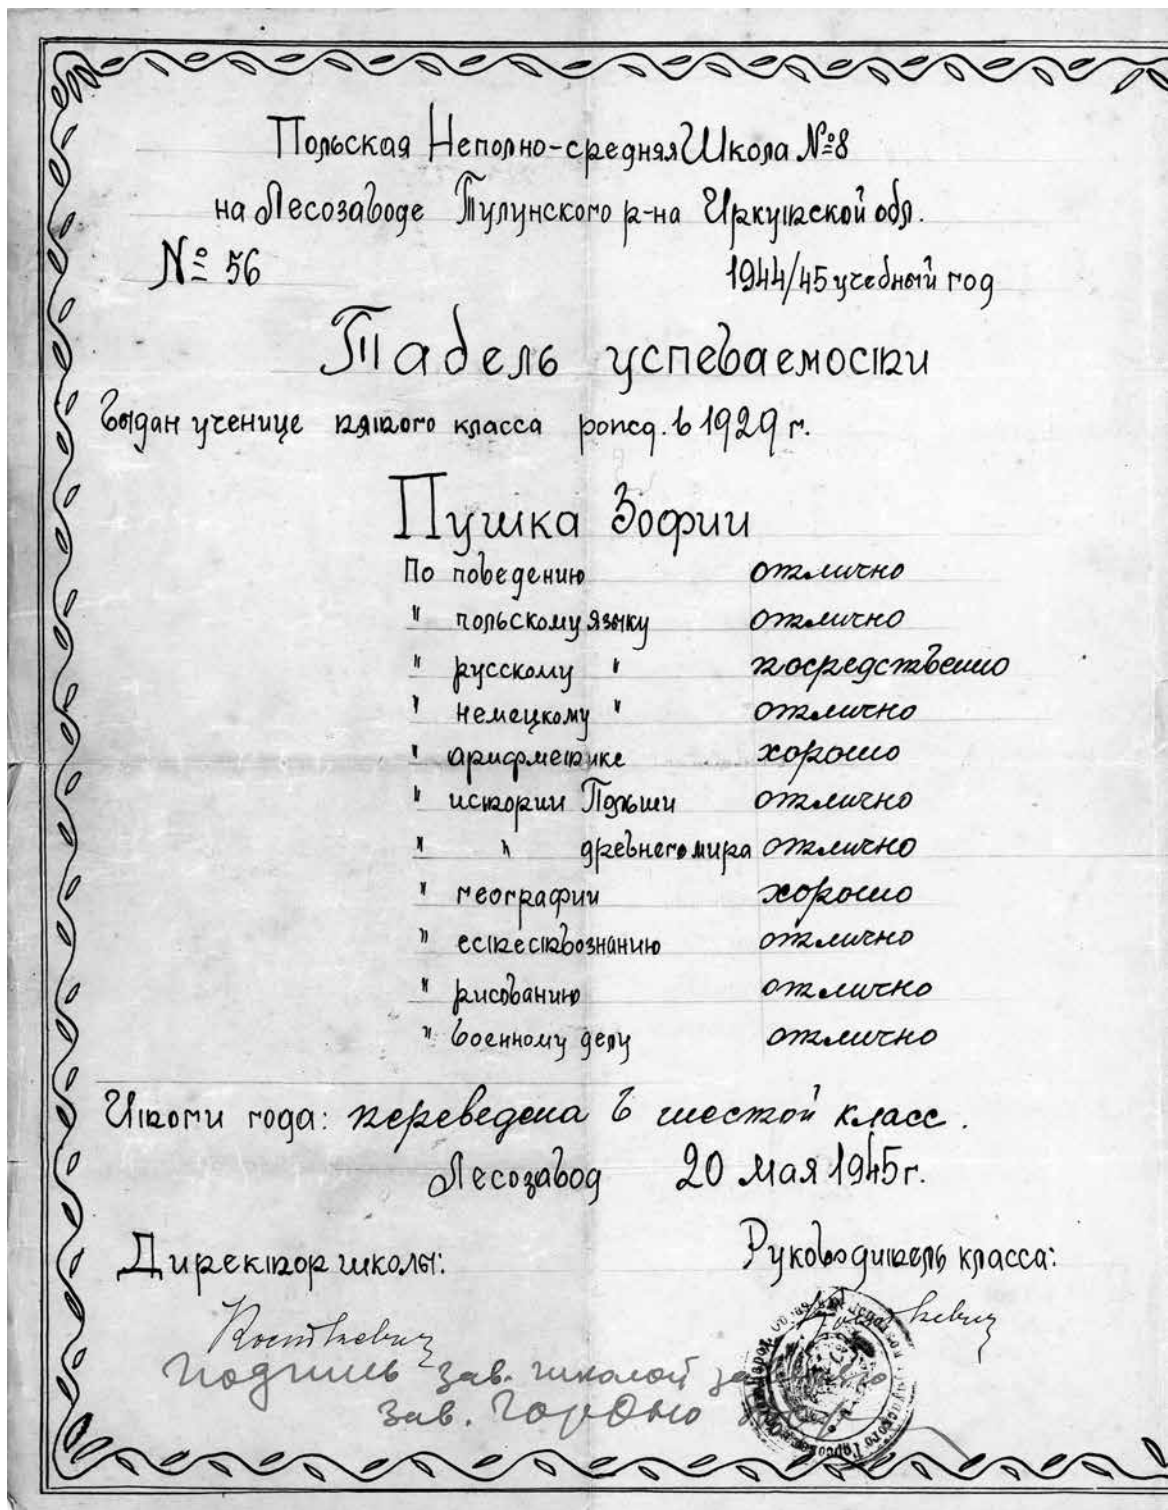 Польская Неполно-средняя Школа №8
на Лесозаводе Тулунского р-на Иркутской обл.
№ 56
1944/45 учебный год
Табель успеваемости
Выдан ученице пятого класса рожд. в 1929 г.
Пушка Зофии
По поведению отлично
" польскому языку отлично
" русскому " посредственно
" немецкому " отлично
" арифметике хорошо
" истории Польши отлично
" " древнего мира отлично
" географии хорошо
" естествознанию отлично
" рисованию отлично
" военному делу отлично
Итоги года: переведена в шестой класс.
Лесозавод 20 мая 1945 г.
Директор школы: Руководитель класса:
Подпись зав. школой
зав. ГорОНО